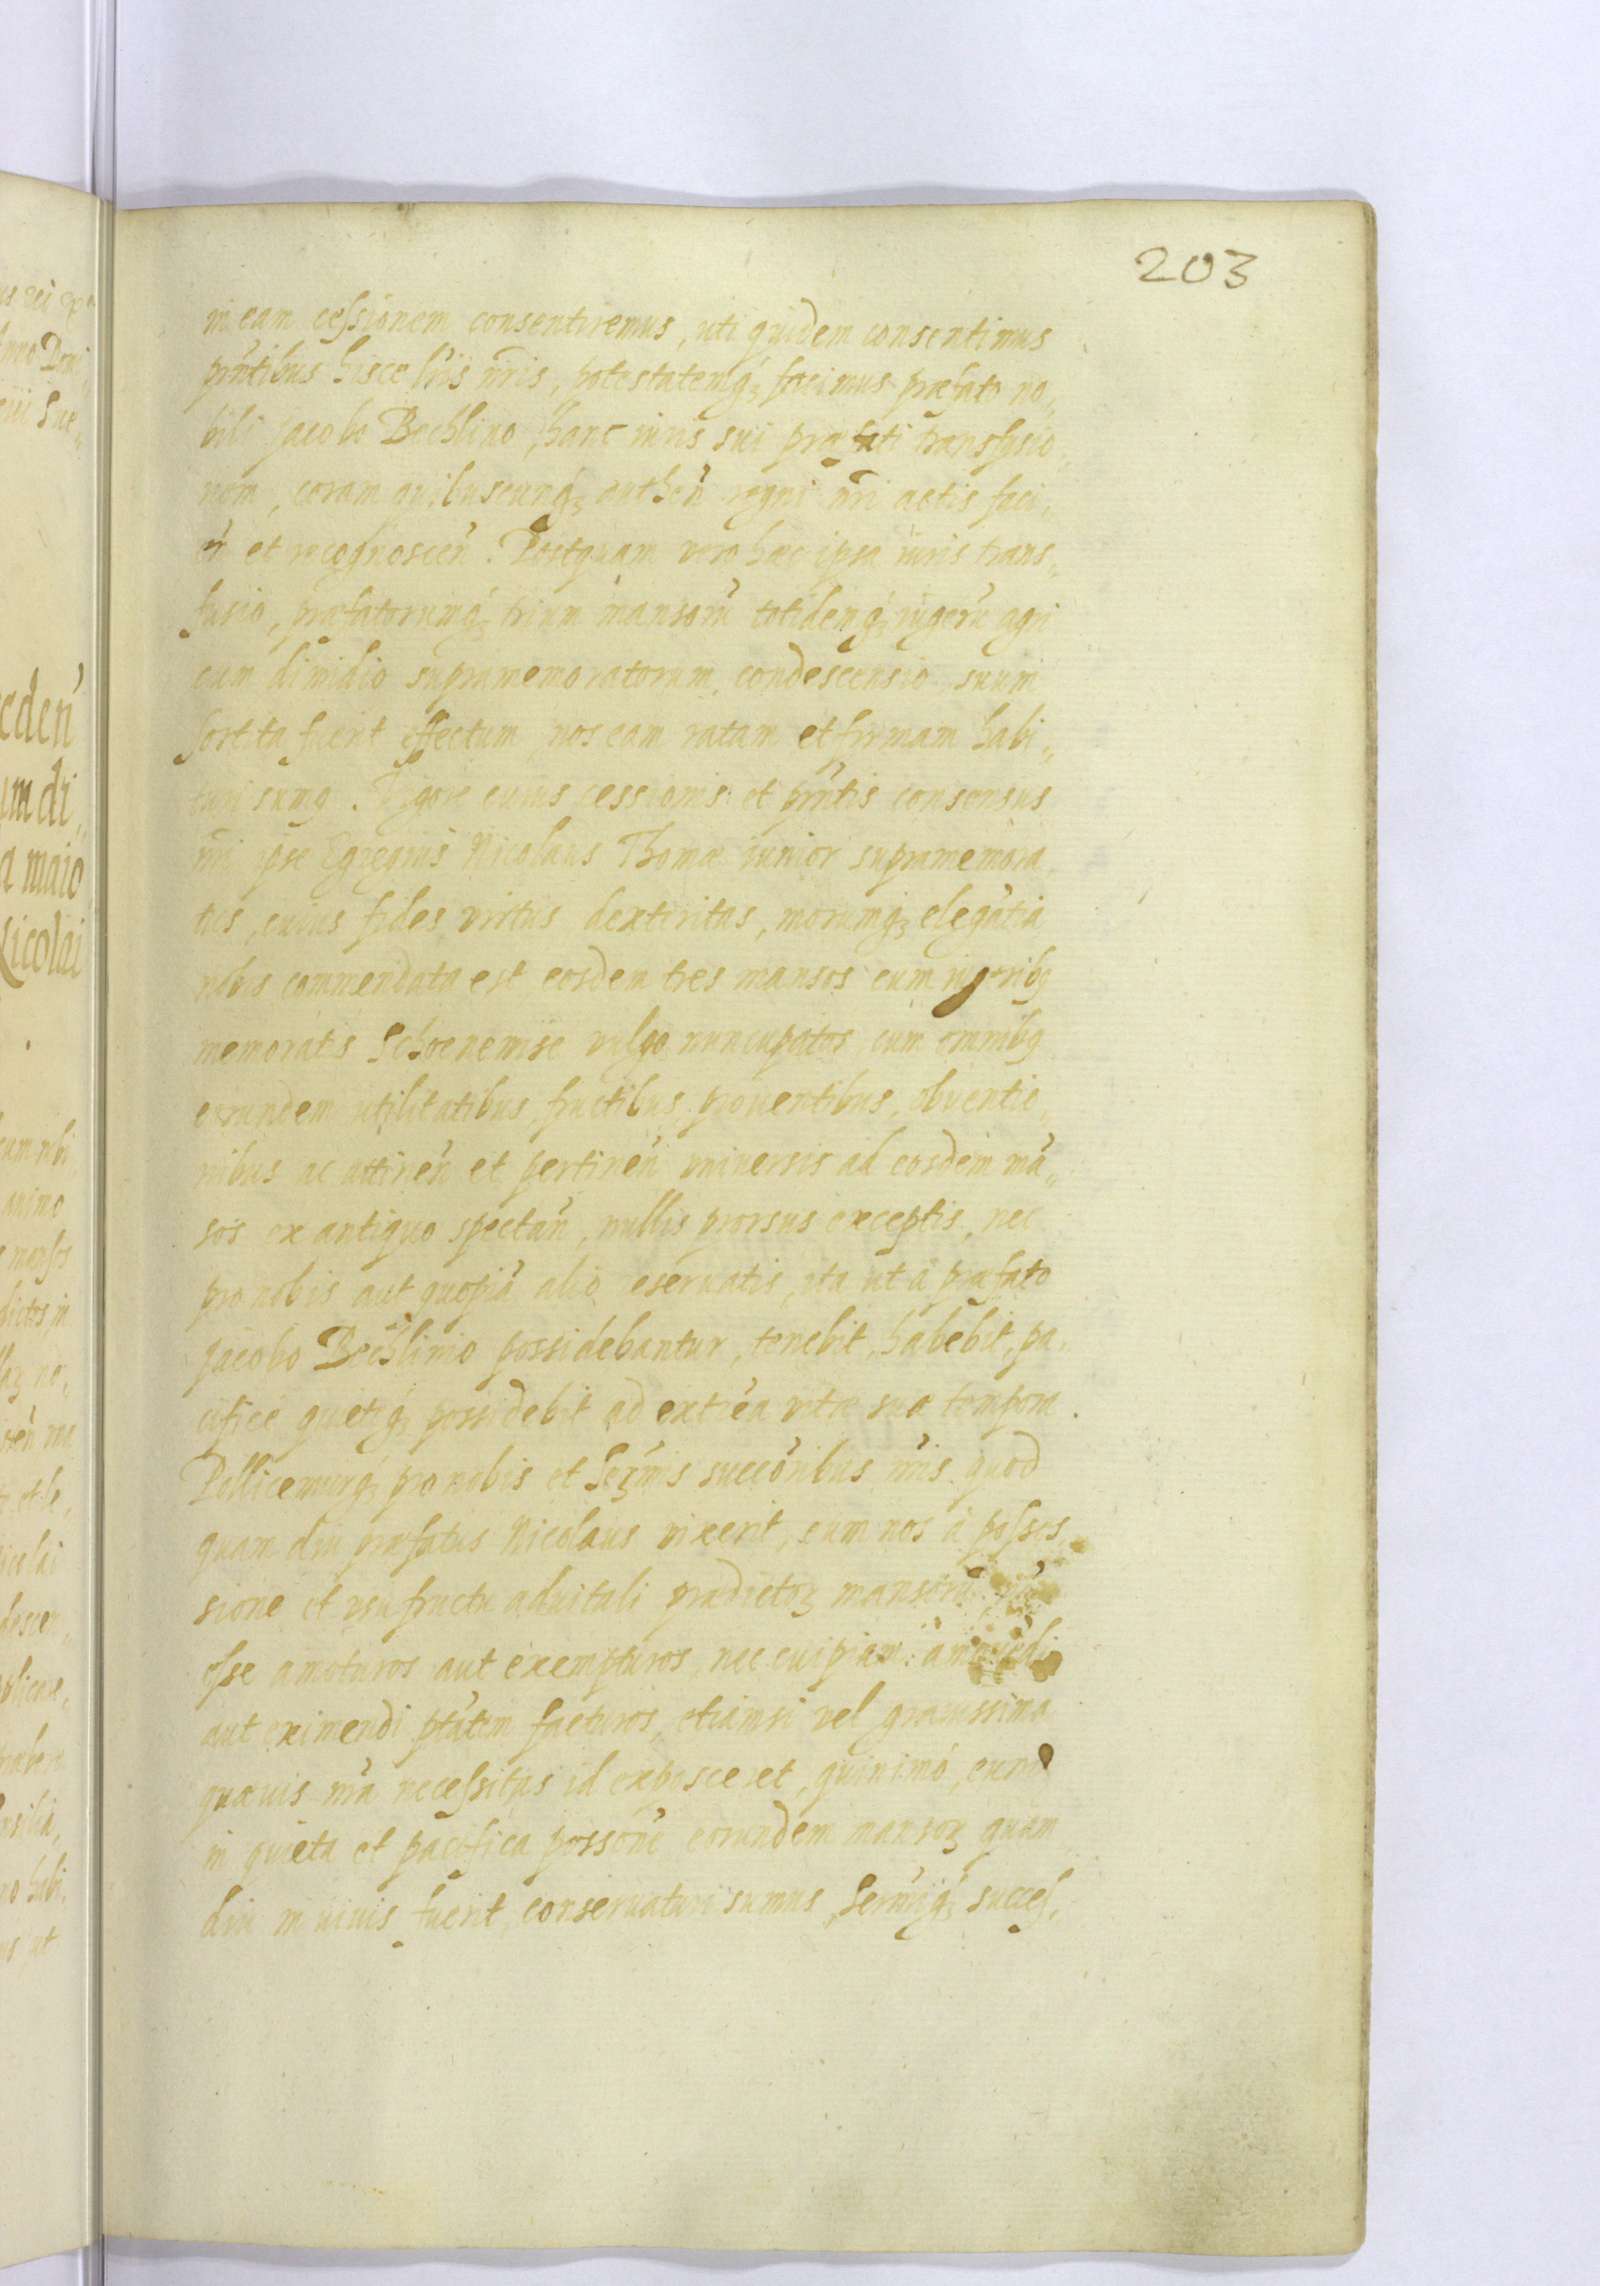 203
in eam cessionem consentiremus, uti quidem consentimus
pñtibus hisce lřis ñris, potestatemq; facimus præfato no„
bili Jacobo Bechlino, hanc iuris sui præfati transfusio„
nem, coram quibuscunq; authen̄ regni ñri actis faci„
en̄ et recognoscen̄. Postquam vero hæc ipsa iuris trans„
fusio, præfatorumq; trium mansorũ totidemq; iugerũ agri
cum dimidio supramemoratorum condescensio, suum
sortita fuerit effectum nos eam ratam et firmam habi„
turi sumq. Vigore cuius cessionis et pñtis consensus
ñri ipse Egregius Nicolaus Thomæ iunior supramemora
tus, cuius fides virtus dexteritas, morumq; elegãtia
nobis commendata est eosdem tres mansos cum iugeribq
memoratis Schoenewise vulgo nuncupatos cum omnibq
eorundem utilitatibus, fructibus, prouentibus, obuentio„
nibus ac attinen̄ et pertinen̄ vniuersis ad eosdem mã„
sos ex antiquo spectan̄, nullis prorsus exceptis, nec
pro nobis aut quopiã alio reseruatis, ita ut à præfato
Jacobo Bechlinio possidebantur, tenebit, habebit, pa„
cificè quietèq; possidebit ad extrẽa vitæ suæ tempora.
Pollicemurq; pro nobis et Serm̃is succõribus ñris quod
quam diu præfatus Nicolaus vixerit, eum nos à posses„
sione et vsufructu aduitali prædictoꝝ mansorũ nõ
esse amoturos aut exempturos, nec cuipiam amouẽdi
aut eximendi ptãtem facturos, etiamsi vel grauissima
quæuis ñra necessitas id exposceret, quinimó, eum
in quieta et pacifica possõne eorundem mansoꝝ quam
diu in uiuis fuerit conseruaturi sumus, Serm̃iq; succes„